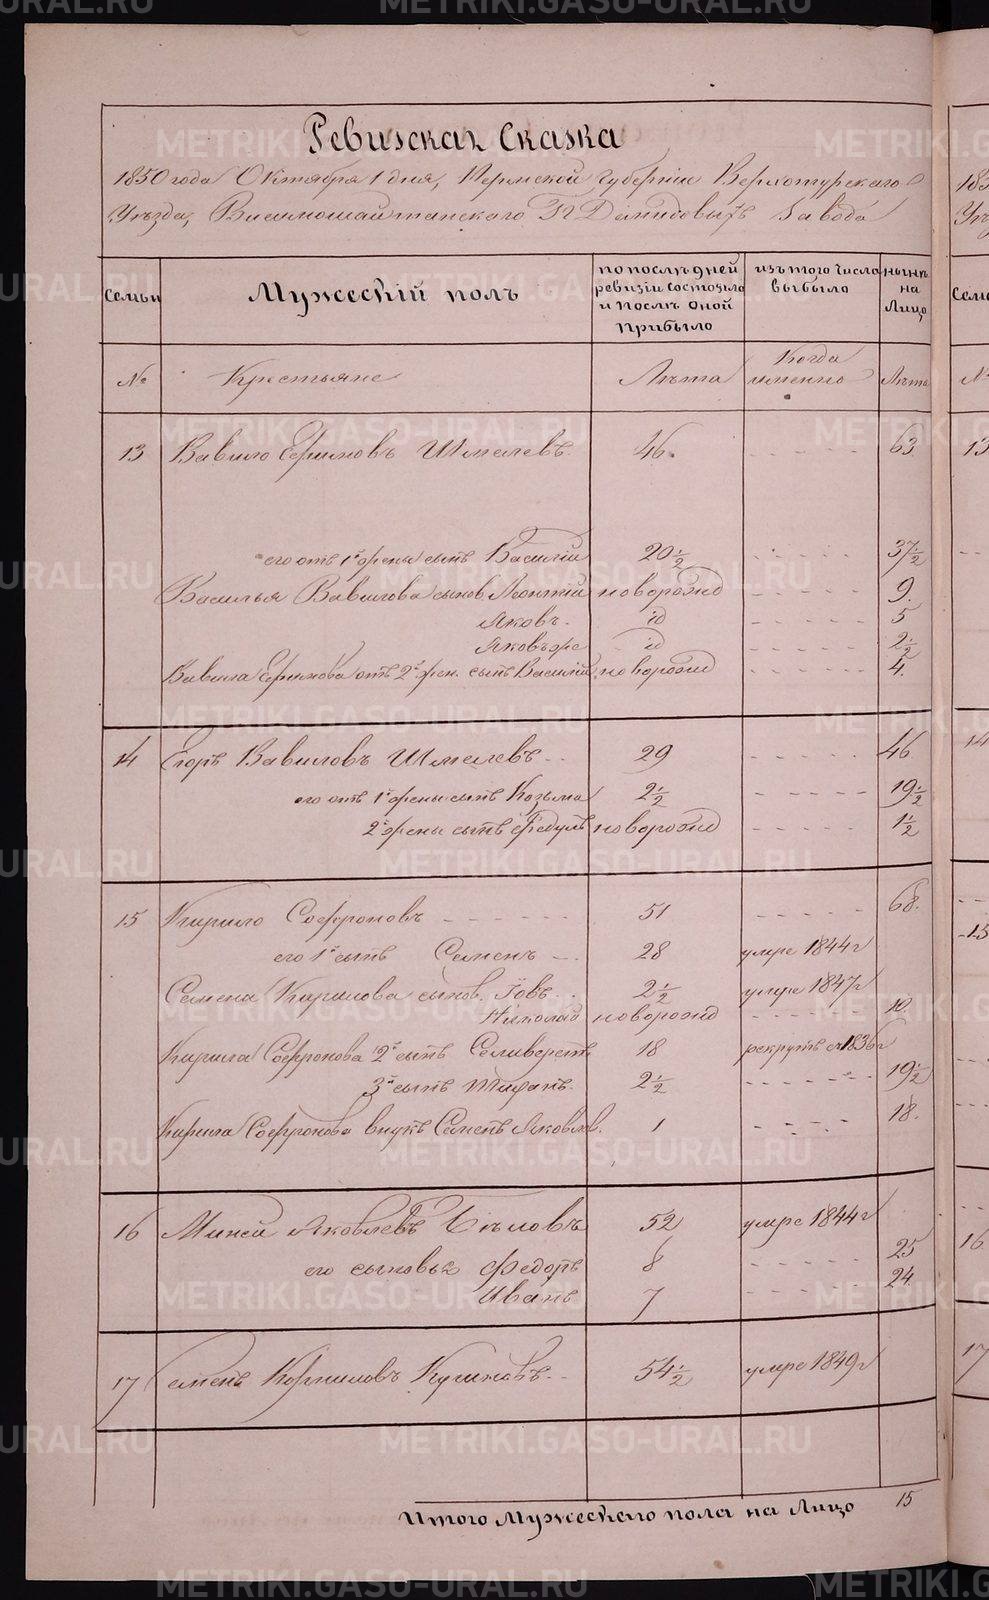 Ревизская Сказка
1850 года Октября 1 дня, Пермской Губернии Верхотурскаго
Уѣзда, Висимошайтанскаго П Демидовыхъ Завода
Семьи
Мужескій полъ
по послѣдней ревизіи состояло и послѣ оной прибыло
изъ того числа выбыло
нынѣ на Лицо
№ Крестьяне Лѣта Когда именно Лѣта
13 Вавило Ефимовъ Шмелевъ 46 63
его отъ 1й жены сынъ Василій 20½ 37½
Василья Вавилова сынов Леонтій новорожд 9
Яковъ id 5
Яковъ же id 2½
Вавила Ефимова отъ 2й жен. сынъ Василій новорожд 4
14 Егоръ Вавиловъ Шмелевъ 29 46
его отъ 1й жены сынъ Козьма 2½ 19½
2й жены сынъ Федулъ новорожд 1½
15 Кирило Софроновъ 51 68
его 1й сынъ Семенъ 28 умре 1844 г
Семена Кирилова сынов. Іовъ 2½ умре 1847 г
Николай новорожд 10
Кирила Софронова 2й сынъ Селиверстъ 18 рекрутъ с 1836 г
3й сынъ 2½ 19½
Кирила Софронова внукъ Семенъ Яковлев. 1 18
16 Миней Яковлевъ Бѣловъ 52 умре 1844 г
его сыновья Федоръ 8 25
Иванъ 7 24
17 Семенъ Корниловъ 54½ умре 1849 г
Итого Мужескаго пола на Лицо 15
METRIKI.GASO-URAL.RU